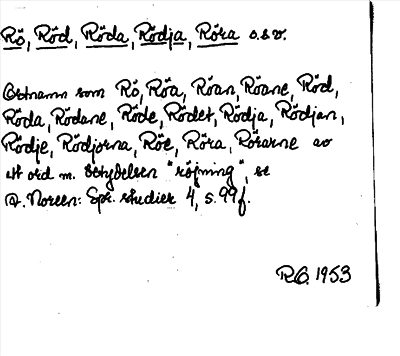 Rö, Röd, Röda, Rödja, Röra o.s.v.
Ortnamn som Rö, Röa, Röan, Röane, Röd,
Röda, Rödane, Röde, Rödet, Rödja, Rödjan,
Rödje, Rödjorna, Röe, Röra, Rörarne av
ett ord m. betydelsen "röjning", se
A. Noreen: Spr. studier 4, s. 99 f.
R.G. 1953